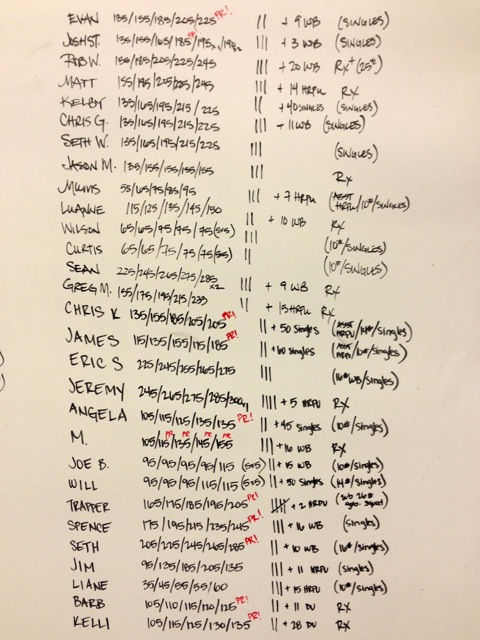 EVAN 135/155/185/205/225 PR! || + 9 WB (SINGLES)
JOSH ST. 135/155/165/185 PR! /195 || + 3 WB (SINGLES)
ROB W. 155/185/205/225/245 ||| + 20 WB RX+ (25#)
MATT 155/195/205/225/245 ||| + 14 HRPU RX
KELBY 135/165/195/215/225 || + 40 SINGLES (SINGLES)
CHRIS G. 135/165/195/215/225 ||| + 11 WB (SINGLES)
SETH W. 135/165/195/215/225 ||| (SINGLES)
JASON M. 135/155/155/155/155 ||| RX
55/65/75/85/95 ||| + 7 HRPU (HRPU/10#/SINGLES)
LUANNE 115/125/135/145/150 || + 10 WB RX
WILSON 65/65/75/75/75 (5x5) ||| (10#/SINGLES)
CURTIS 65/65/75/75/75 (5x5) || (10#/SINGLES)
SEAN 225/245/265/275/285 x2 ||| + 9 WB RX
GREG M. 155/175/195/215/235 || + 15 HRPU RX
CHRIS K 135/155/185/205/205 PR! || + 50 Singles (HRPU/14#/Singles)
JAMES 115/135/155/175/185 PR! || + 60 singles (HRPU/10#/Singles)
ERIC S 225/245/255/265/275 ||| (16# WB/SINGLES)
JEREMY 245/265/275/285/300 |||| + 5 HRPU RX
ANGELA 105/115/125/135/135 PR! || + 45 Singles (10#/Singles)
M. 105/115 PR /135 PR /145 PR /155 PR ||| + 16 WB RX
JOE B. 95/95/95/95/115 (5x5) || + 15 WB (10#/Singles)
WILL 95/95/95/115/115 (5x5) || + 50 Singles (14#/Singles)
TRAPPER 165/175/185/195/205 PR! + 2 HRPU
SPENCE 175/195/215/235/245 PR! ||| + 16 WB (Singles)
SETH 205/225/245/265/285 PR! || + 10 WB (16#/Singles)
JIM 95/135/185/205/135 ||| + 11 HRPU (Singles)
LIANE 35/45/55/55/60 ||| + 15 HRPU (10#/Singles)
BARB 105/110/115/120/125 PR! || + 11 DU RX
KELLI 105/115/125/130/135 PR! || + 28 DU RX